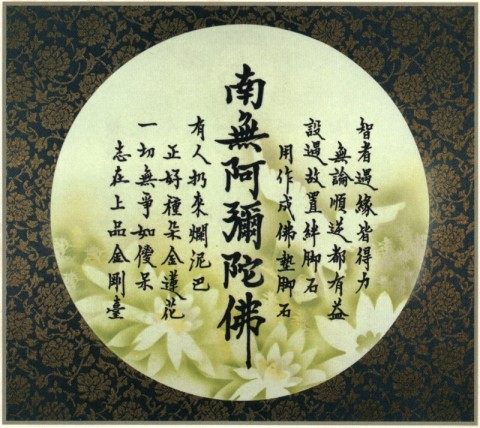 智者遇緣皆得力
無論順逆都有益
設遇故置絆脚石
用作成佛墊脚石
南無阿彌陀佛
有人扔來爛泥巴
正好種朵金蓮花
一切無爭如傻呆
志在上品金剛臺